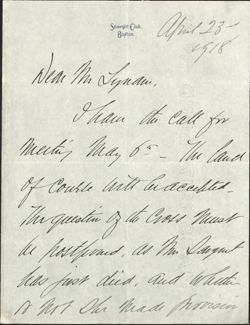 Somerset Club,
Boston.
April 23d
1918
Dear Mr Lynam,
I have the call for
Meeting May 6th - The land
of course will be accepted -
The question of the Cross must
be postponed, as Mr Sargent
has just died, and whether
or not she made provision